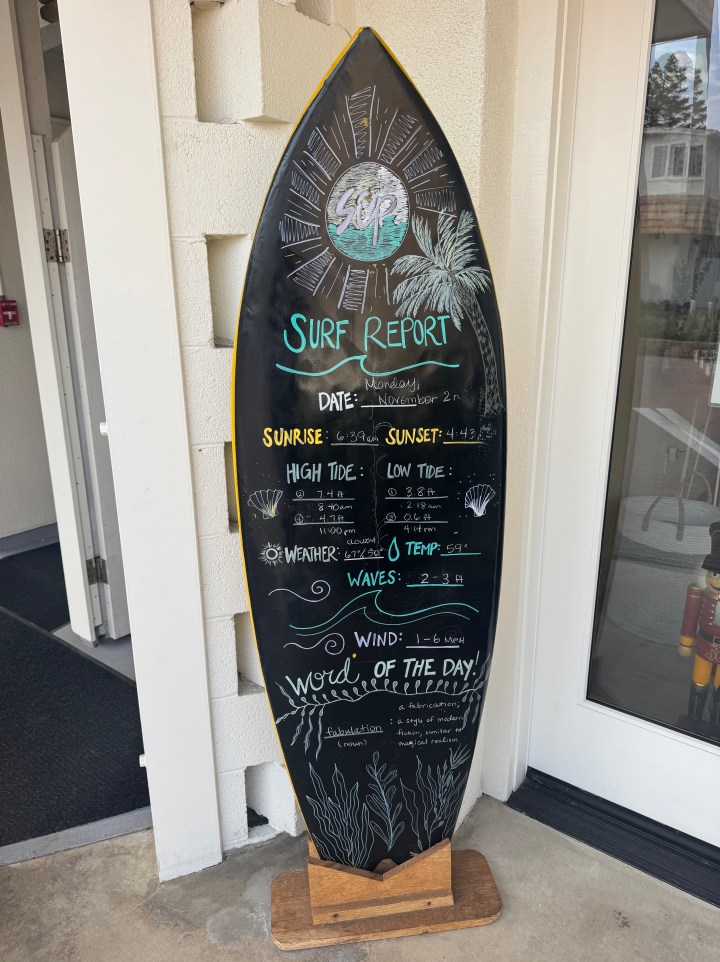 SUP
SURF REPORT
DATE: Monday,
November 2
SUNRISE: 6:39am SUNSET: 4:43
HIGH TIDE: LOW TIDE:
① 7.4 ft ① 3.8 ft
8:40am 2:18am
② 4.7 ft ② 0.6 ft
11:00pm 4:14pm
cloudy
WEATHER: 67°/50° TEMP: 59°
WAVES: 2-3 ft
WIND: 1-6 MPH
word OF THE DAY!
a fabrication;
fabulation : a style of modern
(noun) fiction, similar to
magical realism